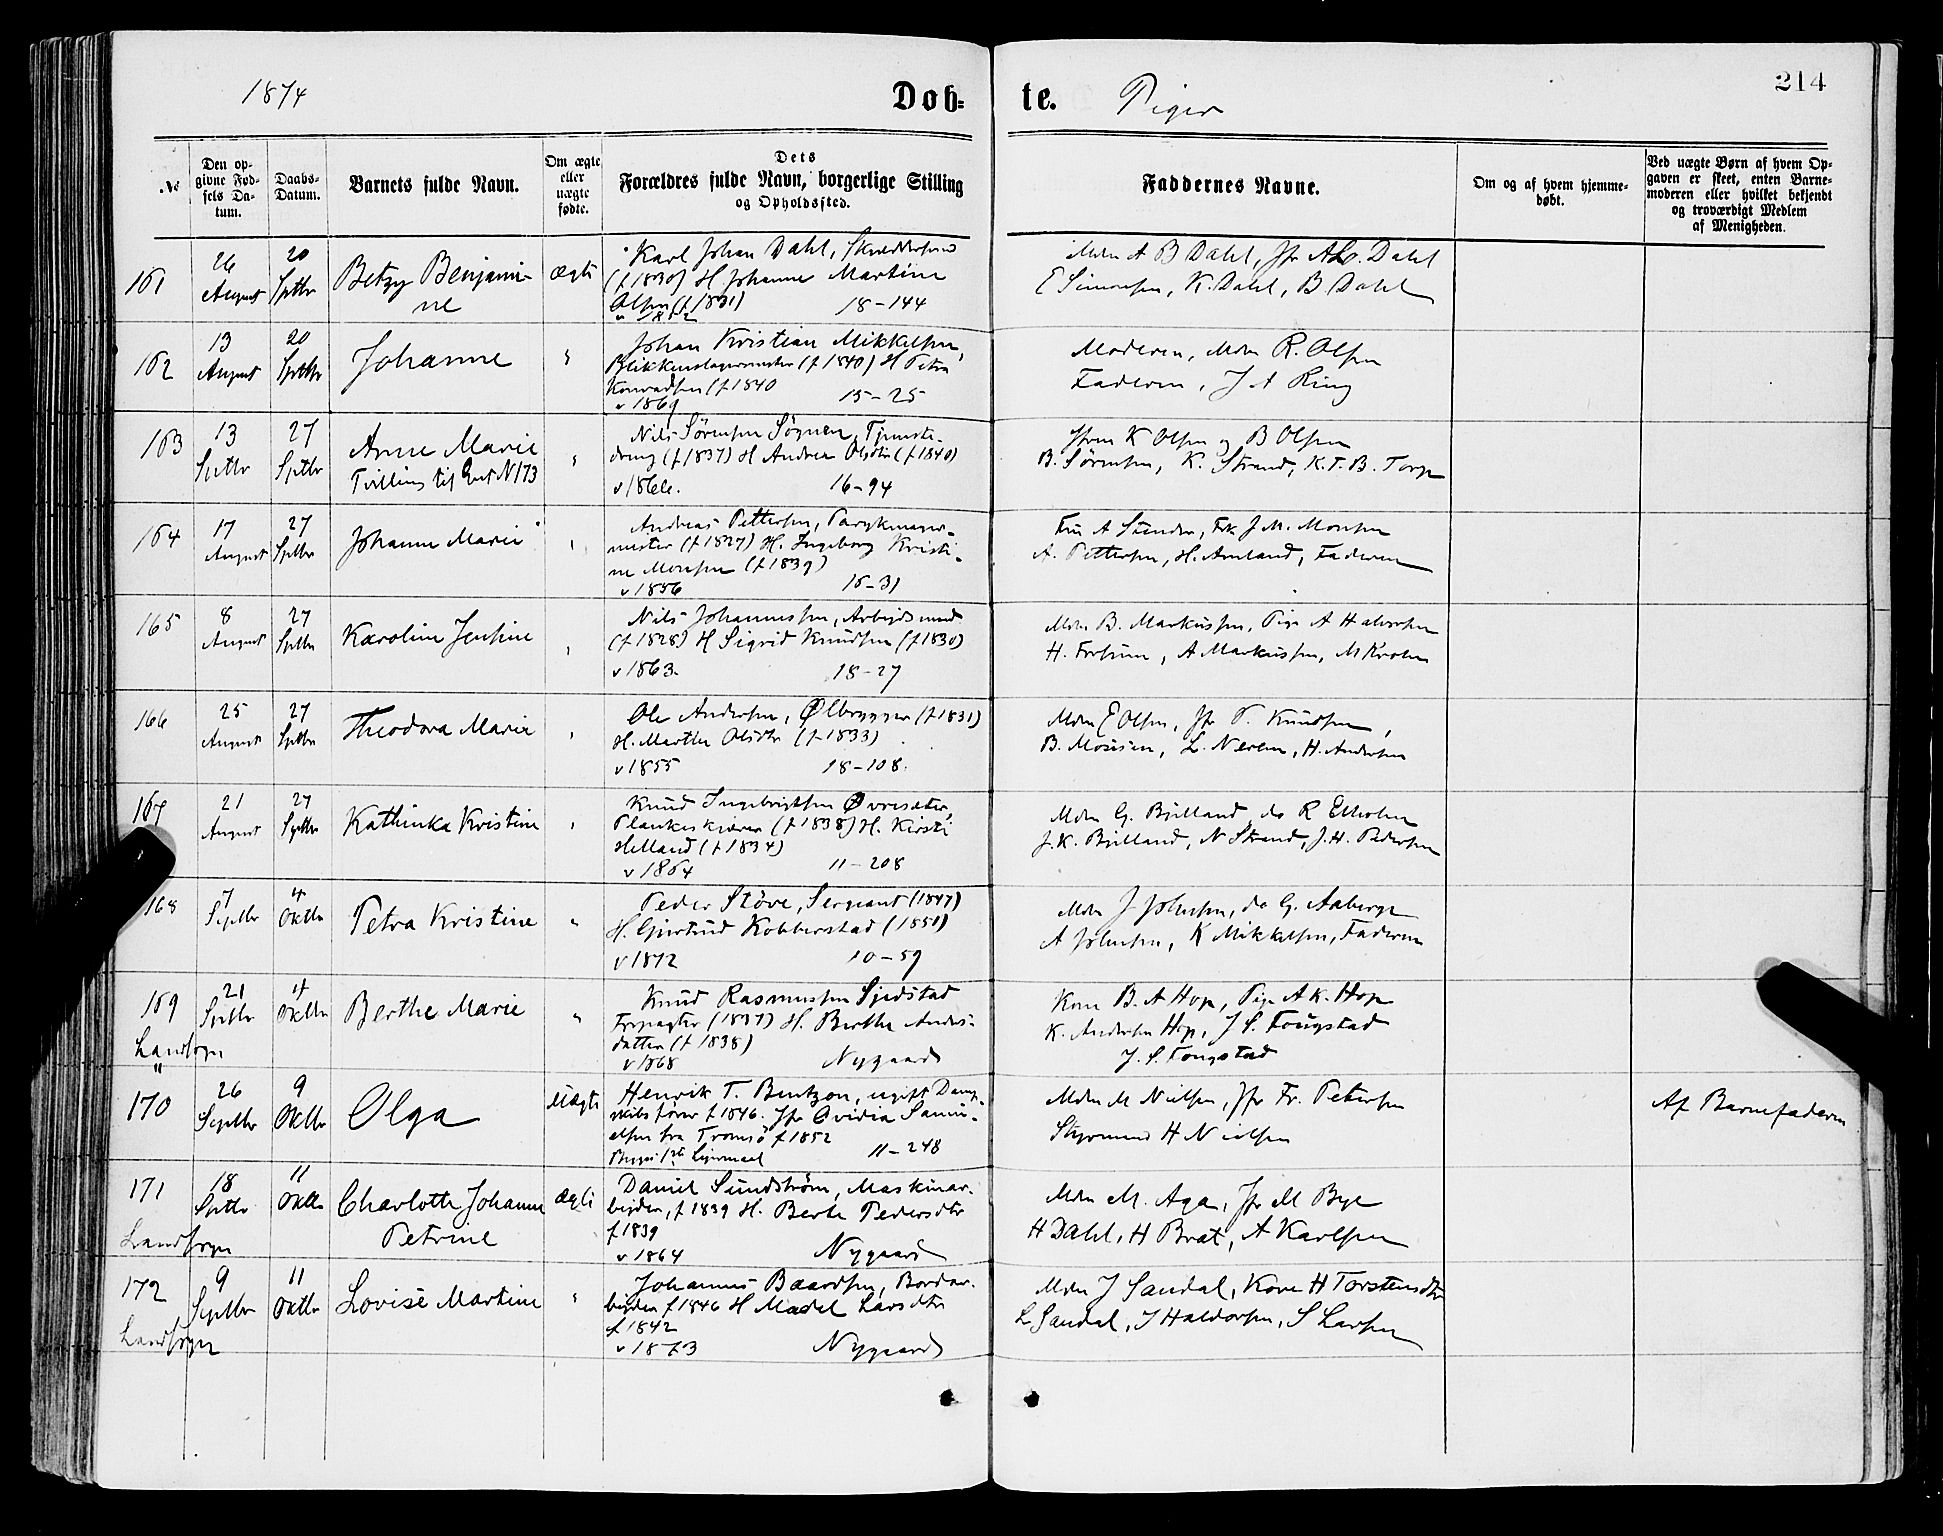 1874
Døb= te. Piger
214
No
Den opgivne Fødsels Datum.
Daabs-Datum.
Barnets fulde Navn.
Om ægte eller uægte fødte.
Dets Forældres fulde Navn, borgerlige Stilling og Opholdssted.
Faddernes Navne.
Om og af hvem hjemmedøbt.
Ved uægte Børn af hvem Opgaven er skeet, enten Barnemoderen eller hvilket bekjendt og troværdigt Medlem af Menigheden.
161
26 August
20 Septbr
Betzy Benjamine
Ægte
Karl Johan Dahl,
(f 1830) H Johanne Martine
Olsen (f 1831)
18-144
Mdm A B Dahl, Jfr A Dahl
E Simonsen, K. Dahl, B Dahl
162
13 August
20 Septbr
Johanne
"
Johan Kristian Mikkelsen,
Blikkenslagermester (f 1840) H Petra
Konradsen (f 1840
v 1869
15-25
Moderen, Mdm R. Olsen
Faderen, J A Ring
163
13 Septbr
27 Septbr
Anne Marie
Tvilling til Gut N 173
"
Nils Sørensen Søgnen, Tjeneste-
dreng (f 1837) H Andrea Olsdtr (f 1840)
v 1866.
16-94
K Olsen og B Olsen
B. Sørensen, K. Strand, K. T. B. Torp
164
17 August
27 Septbr
Johanne Marie
"
Andreas Pettersen, Parykmager-
mester (f 1827) H. Ingeborg Kristi-
ne Monsen (f 1839)
v 1856
15-31
Fru A Sunder, Frk J. M. Monsen
A. Pettersen, H. Amland, Faderen
165
8 August
27 Septbr
Karoline Jensine
"
Nils Johannessen, Arbejdsmand
(f 1828) H Sigrid Knudsen (f 1830)
v 1863.
18-27
Mdm B. Markussen, Pige A Halvorsen
H. , A Markussen, M Krohn
166
25 August
27 Septbr
Theodora Marie
"
Ole Andersen, Ølbrygger (f 1831)
H. Marthe Olsdtr (f 1833)
v 1855
18-108.
Mdm E Olsen, Jfr P. Knudsen,
B. Monsen, L. , H. Andersen
167
21 August
27 Septbr
Kathinka Kristine
"
Knud Ingebrigtsen Øvresæter,
Plankeskjærer (f 1838) H. Kirsti
Helland (f 1834)
v 1864
11-208
Mdm G. Bjelland, do R Elholm
J. K. Bjelland, N Strand, J. H. Pedersen
168
7 Septbr
4 Oktbr
Petra Kristine
"
Peder Støve, Sergeant (1847)
H. Gjertrud Kobberstad (1851)
v 1872
10-59
Mdm J Johnsen, do G. Aaberge
A Johnsen, K Mikkelsen, Faderen
169
Landsogn
21 Septbr
4 Oktbr
Berthe Marie
"
Knud Rasmussen Sjedstad
Forpagter (1837) H. Berthe Anders-
datter (f 1838)
v 1868
Nygaard
Kone B. A Hop, Pige A K. Hop
K. Andersen Hop, J S. Fougstad
J. S. Fougstad
170
26 Septbr
9 Oktbr
Olga
Uægte
Henrik T. Bentzon, ugift Damp-
skibsfører f 1846. Jfr Ovidia Samu-
elsen fra Tromsø f 1852
Begges 1ste Leiermaal
11-248
Mdm M Nielsen, Jfr Fr. Petersen
Styrmand H Nielsen
Af Barnefaderen
171
Landsogn
18 Septbr
11 Oktbr
Charlotte Johanne
Petrine
Ægte
Daniel Sundstrøm, Maskinar-
bejder, f 1839 H. Berte Pedersdtr
f 1839
v 1864
Nygaard
Mdm M. Aga, Jfr M Bye
H Dahl, H Brat, A Karlsen
172
Landsogn
9 Septbr
11 Oktbr
Lovise Martine
"
Johannes Baardsen, Bordar-
bejder f 1846 H Madel Larsdtr
f 1842
v 1873
Nygaard
Mdm J Sandal, Kone H Torstensdtr
L Sandal, J Haldorsen, S Larsen